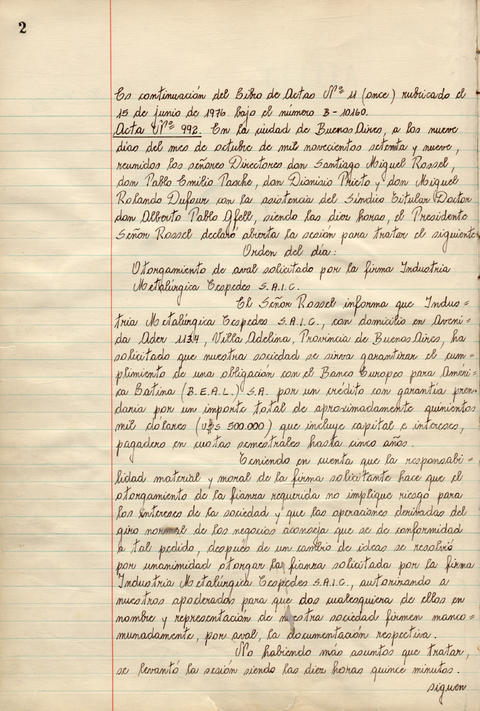 2
Es continuación del Libro de Actas Nº 11 (once) rubricado el
15 de junio de 1976 bajo el número B-10160.
Acta Nº 992. En la ciudad de Buenos Aires, a los nueve
días del mes de octubre de mil novecientos setenta y nueve,
reunidos los señores Directores don Santiago Miguel Rossel,
don Pablo Emilio Pasche, don Dionisio Prieto y don Miguel
Rolando Dufour con la asistencia del Síndico Titular Doctor
don Alberto Pablo Gfell, siendo las diez horas, el Presidente
Señor Rossel declaró abierta la sesión para tratar el siguiente
Orden del día:
Otorgamiento de aval solicitado por la firma Industria
Metalúrgica Cespedes S.A.I.C.
El Señor Rossel informa que Indus=
tria Metalúrgica Cespedes S.A.I.C., con domicilio en Aveni=
da Ader 1134, Villa Adelina, Provincia de Buenos Aires, ha
solicitado que nuestra sociedad se sirva garantizar el cum=
plimiento de una obligación con el Banco Europeo para Améri=
ca Latina (B.E.A.L.) S.A. por un crédito con garantía pren=
daria por un importe total de aproximadamente quinientos
mil dólares (U$S 500.000) que incluye capital e intereses,
pagadero en cuotas semestrales hasta cinco años.
Teniendo en cuenta que la responsabi=
lidad material y moral de la firma solicitante hace que el
otorgamiento de la fianza requerida no implique riesgo para
los intereses de la sociedad y que las operaciones derivadas del
giro normal de los negocios aconseja que se de conformidad
a tal pedido, después de un cambio de ideas se resolvió
por unanimidad otorgar la fianza solicitada por la firma
Industria Metalúrgica Cespedes S.A.I.C., autorizando a
nuestros apoderados para que dos cualesquiera de ellos en
nombre y representación de nuestra sociedad firmen manco=
munadamente, por aval, la documentación respectiva.
No habiendo más asuntos que tratar,
se levantó la sesión siendo las diez horas quince minutos.
siguen